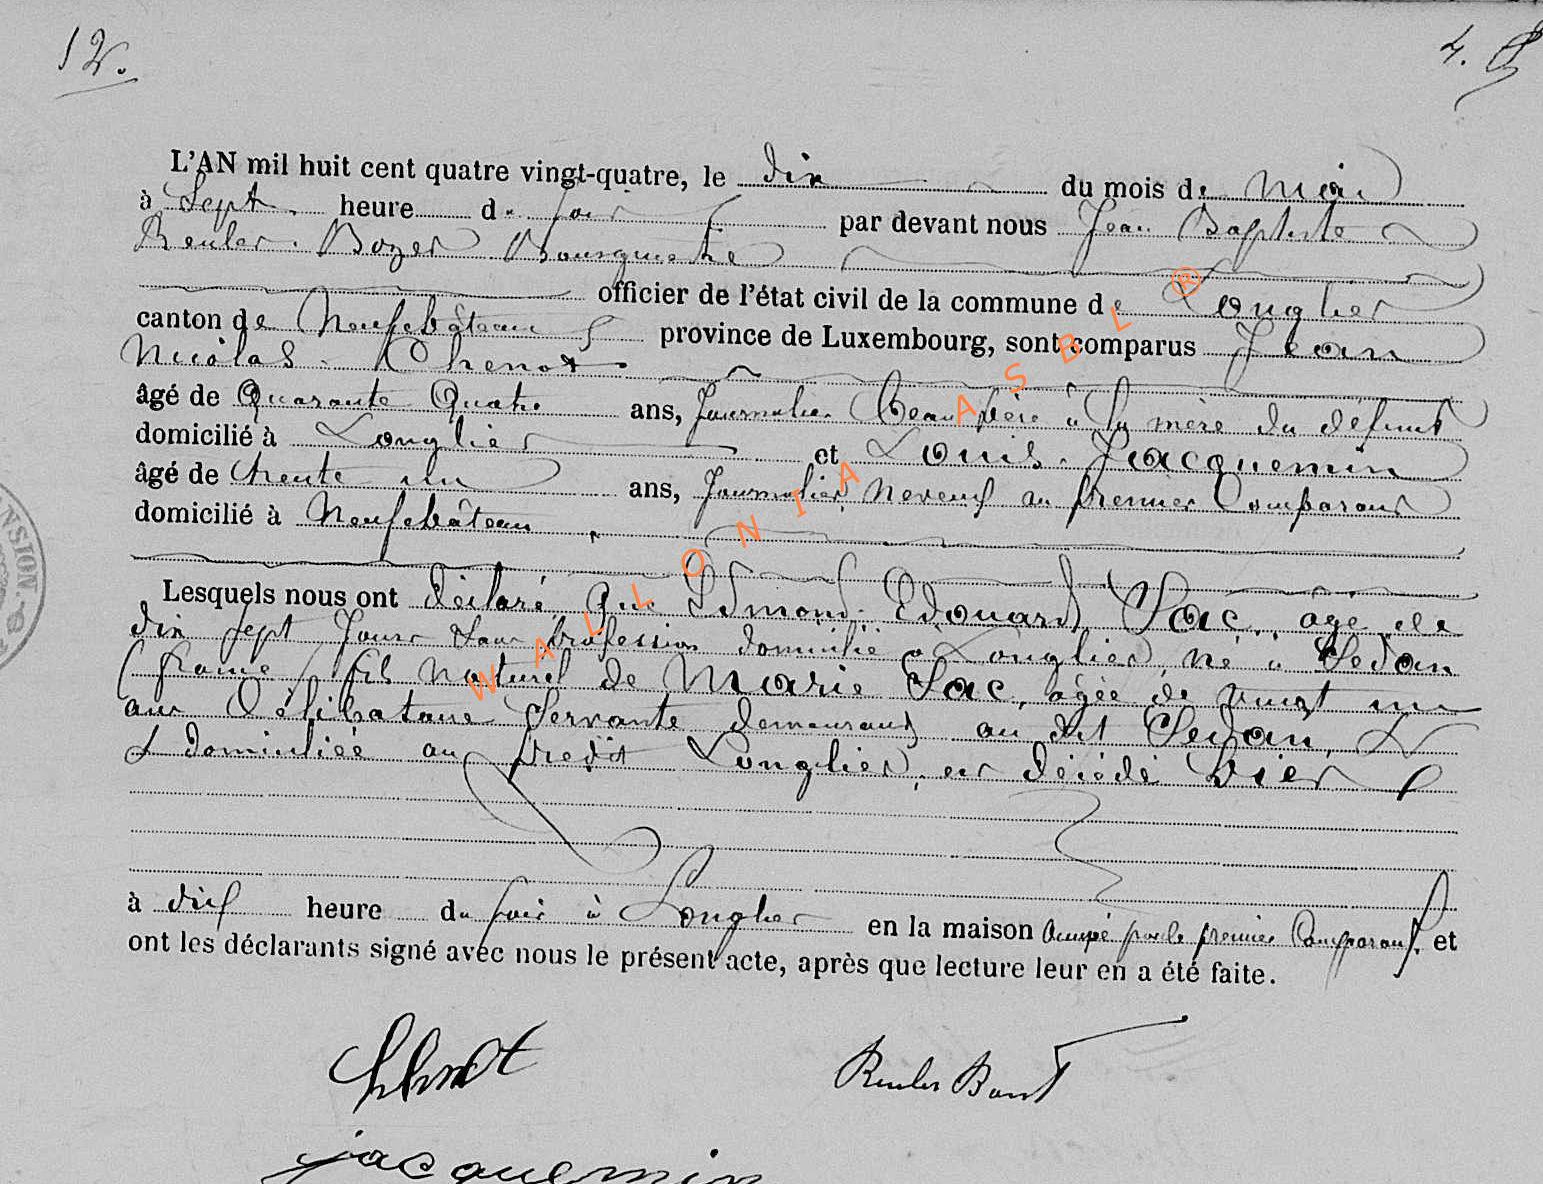 12.
4.
L'AN mil huit cent quatre vingt-quatre, le dix du mois de mai
à Sept heure du soir par devant nous Jean Baptiste
Reuler. Bozer Bourgmestre
officier de l'état civil de la commune de Longlier
canton de Neufchâteau province de Luxembourg, sont comparus Jean
Nicolas Chenot
âgé de Quarante Quatre ans, Journalier Beau père à la mère du défunt
domicilié à Longlier et Louis Jacquemin
âgé de trente un ans, Journalier, Neveux au premier Comparant
domicilié à Neufchâteau
Lesquels nous ont déclaré que Edmond Edouard Sac, âgé de
dix sept Jours Sans profession domicilié à Longlier, né à Sedan
(france) fils naturel de Marie Sac, agée de vingt un
ans Célibataire Servante demeurant au dit Sedan, &
domiciliée au predit Longlier, est décédé hier
à dix heure du soir à Longlier en la maison occupé par le premier Comparant, et
ont les déclarants signé avec nous le présent acte, après que lecture leur en a été faite.
Reuler
jacquemin
WALLONIA ASBL ®
NSION.